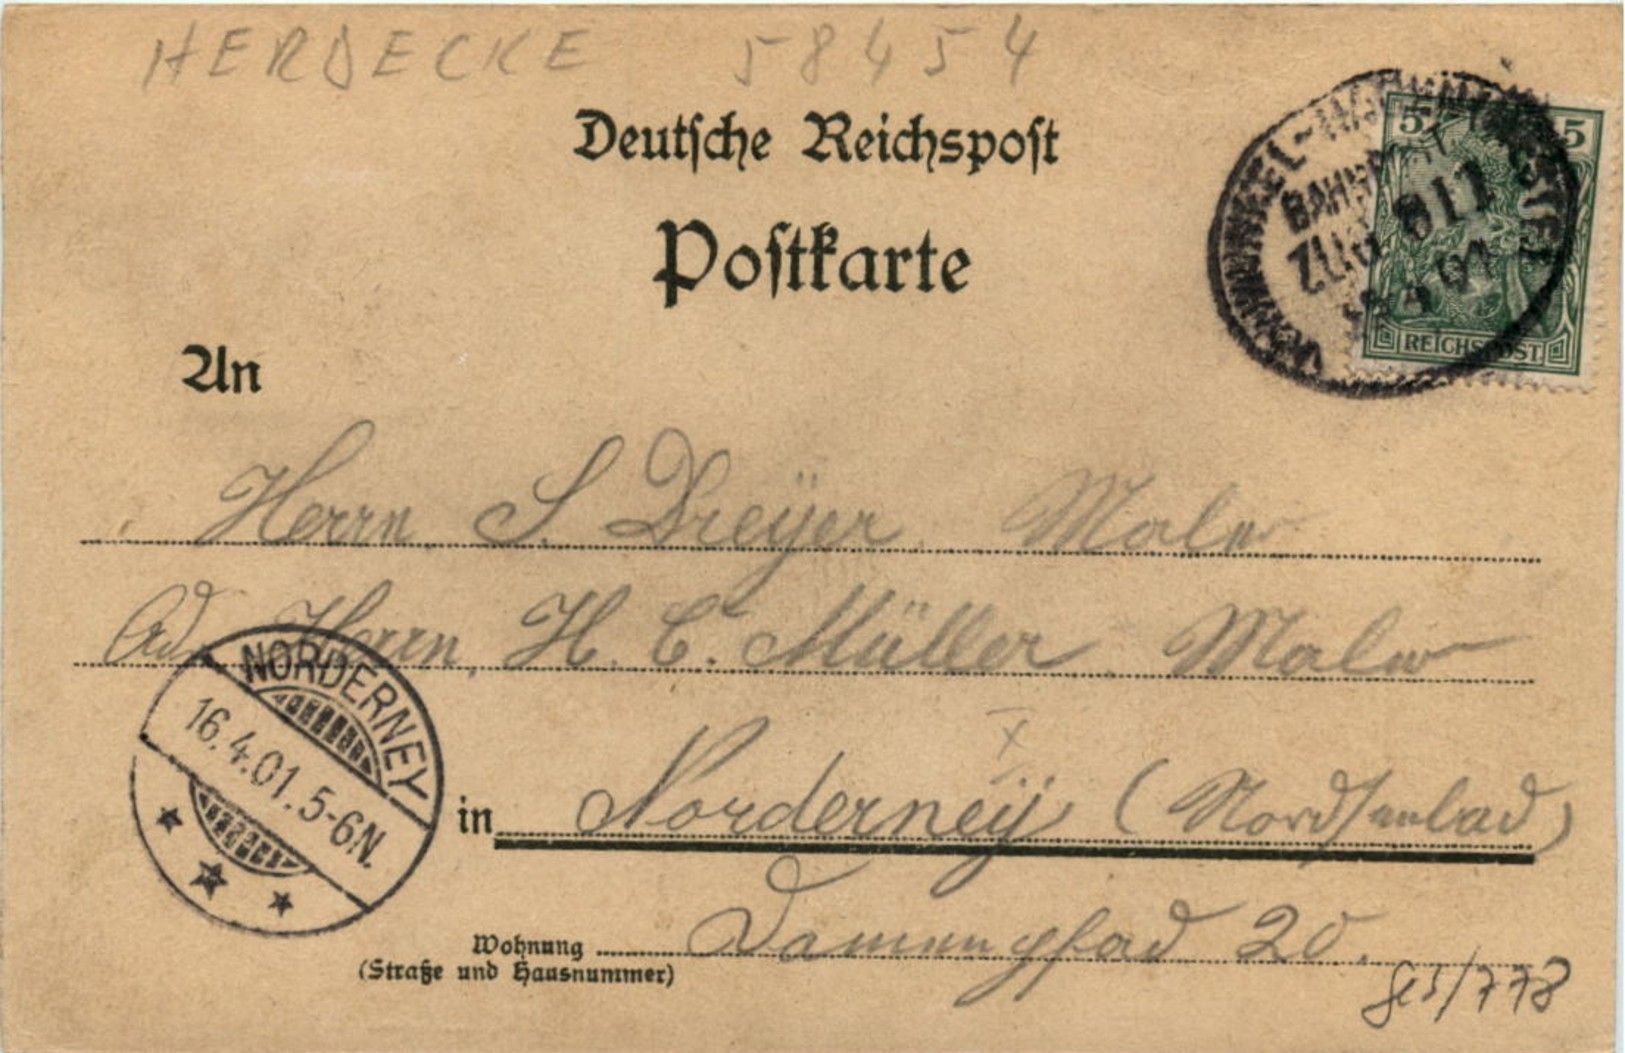 HERDECKE 58454
Deutsche Reichspost
Postkarte
5 5
BAHNPOST
ZUG 811
REICHSPOST
An
Herrn S. Dreÿer Maler
Ad. Herrn H. C. Müller Maler
NORDERNEY
16.4.01.5-6N.
in Norderneÿ (Nordseebad)
Wohnung Damenpfad 20.
(Straße und Hausnummer)
778